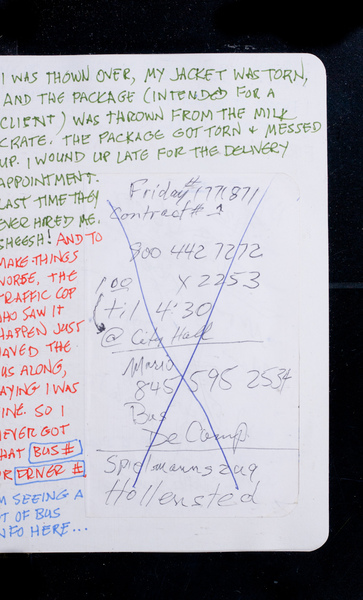 I WAS THOWN OVER, MY JACKET WAS TORN,
AND THE PACKAGE (INTENDED FOR A
CLIENT) WAS THROWN FROM THE MILK
CRATE. THE PACKAGE GOT TORN + MESSED
UP. I WOUND UP LATE FOR THE DELIVERY
APPOINTMENT.
LAST TIME THEY
EVER HIRED ME.
SHEESH! AND TO
MAKE THINGS
WORSE, THE
TRAFFIC COP
WHO SAW IT
HAPPEN JUST
WAVED THE
BUS ALONG,
SAYING I WAS
FINE. SO I
NEVER GOT
THAT BUS #
OR DRIVER #
I'M SEEING A
LOT OF BUS
INFO HERE...
Friday #1771871
Contract # 1
800 442 7272
100 X 2253
til 4:30
@ City Hall
Mario
845 595 2534
Bus
De Camp
Spielmannszug
Hollensted